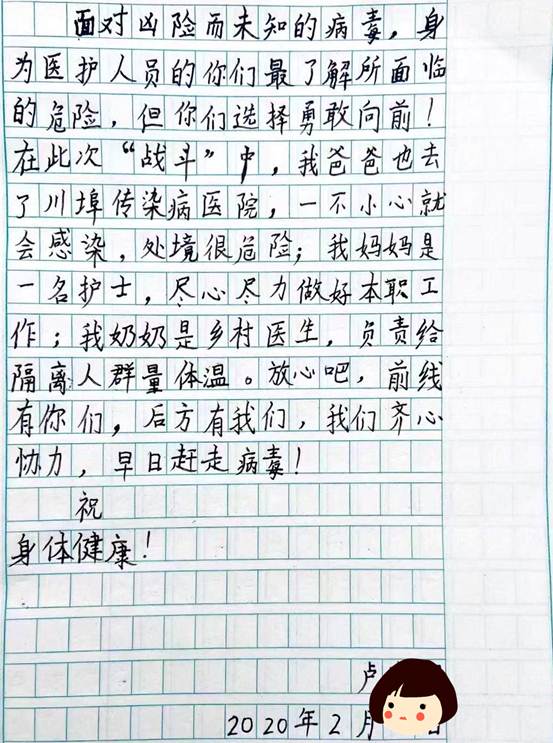 面对凶险而未知的病毒，身
为医护人员的你们最了解所面临
的危险，但你们选择勇敢向前！
在此次“战斗”中，我爸爸也去
了川埠传染病医院，一不小心就
会感染，处境很危险；我妈妈是
一名护士，尽心尽力做好本职工
作；我奶奶是乡村医生，负责给
隔离人群量体温。放心吧，前线
有你们，后方有我们，我们齐心
协力，早日赶走病毒！
祝
身体健康！
卢
2020年2月